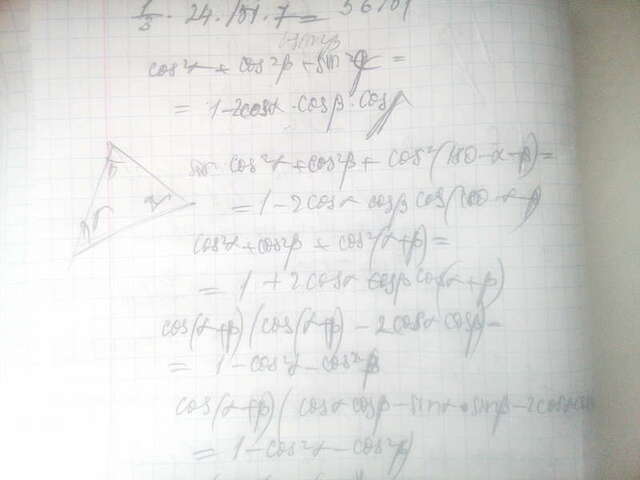 1/3 · 24 · √51 · 7 = 56√51
cos²α + cos²β + sin²φ =
= 1 - 2cosα · cosβ · cosγ
cos²α + cos²β + cos²(180 - α - β) =
= 1 - 2cosα cosβ cos(180 - α - β)
cos²α + cos²β + cos²(α + β) =
= 1 + 2cosα cosβ cos(α + β)
cos(α+β) (cos(α+β) - 2cosα cosβ) =
= 1 - cos²α - cos²β
cos(α+β) (cosα cosβ - sinα · sinβ - 2cosα cosβ
= 1 - cos²α - cos²β